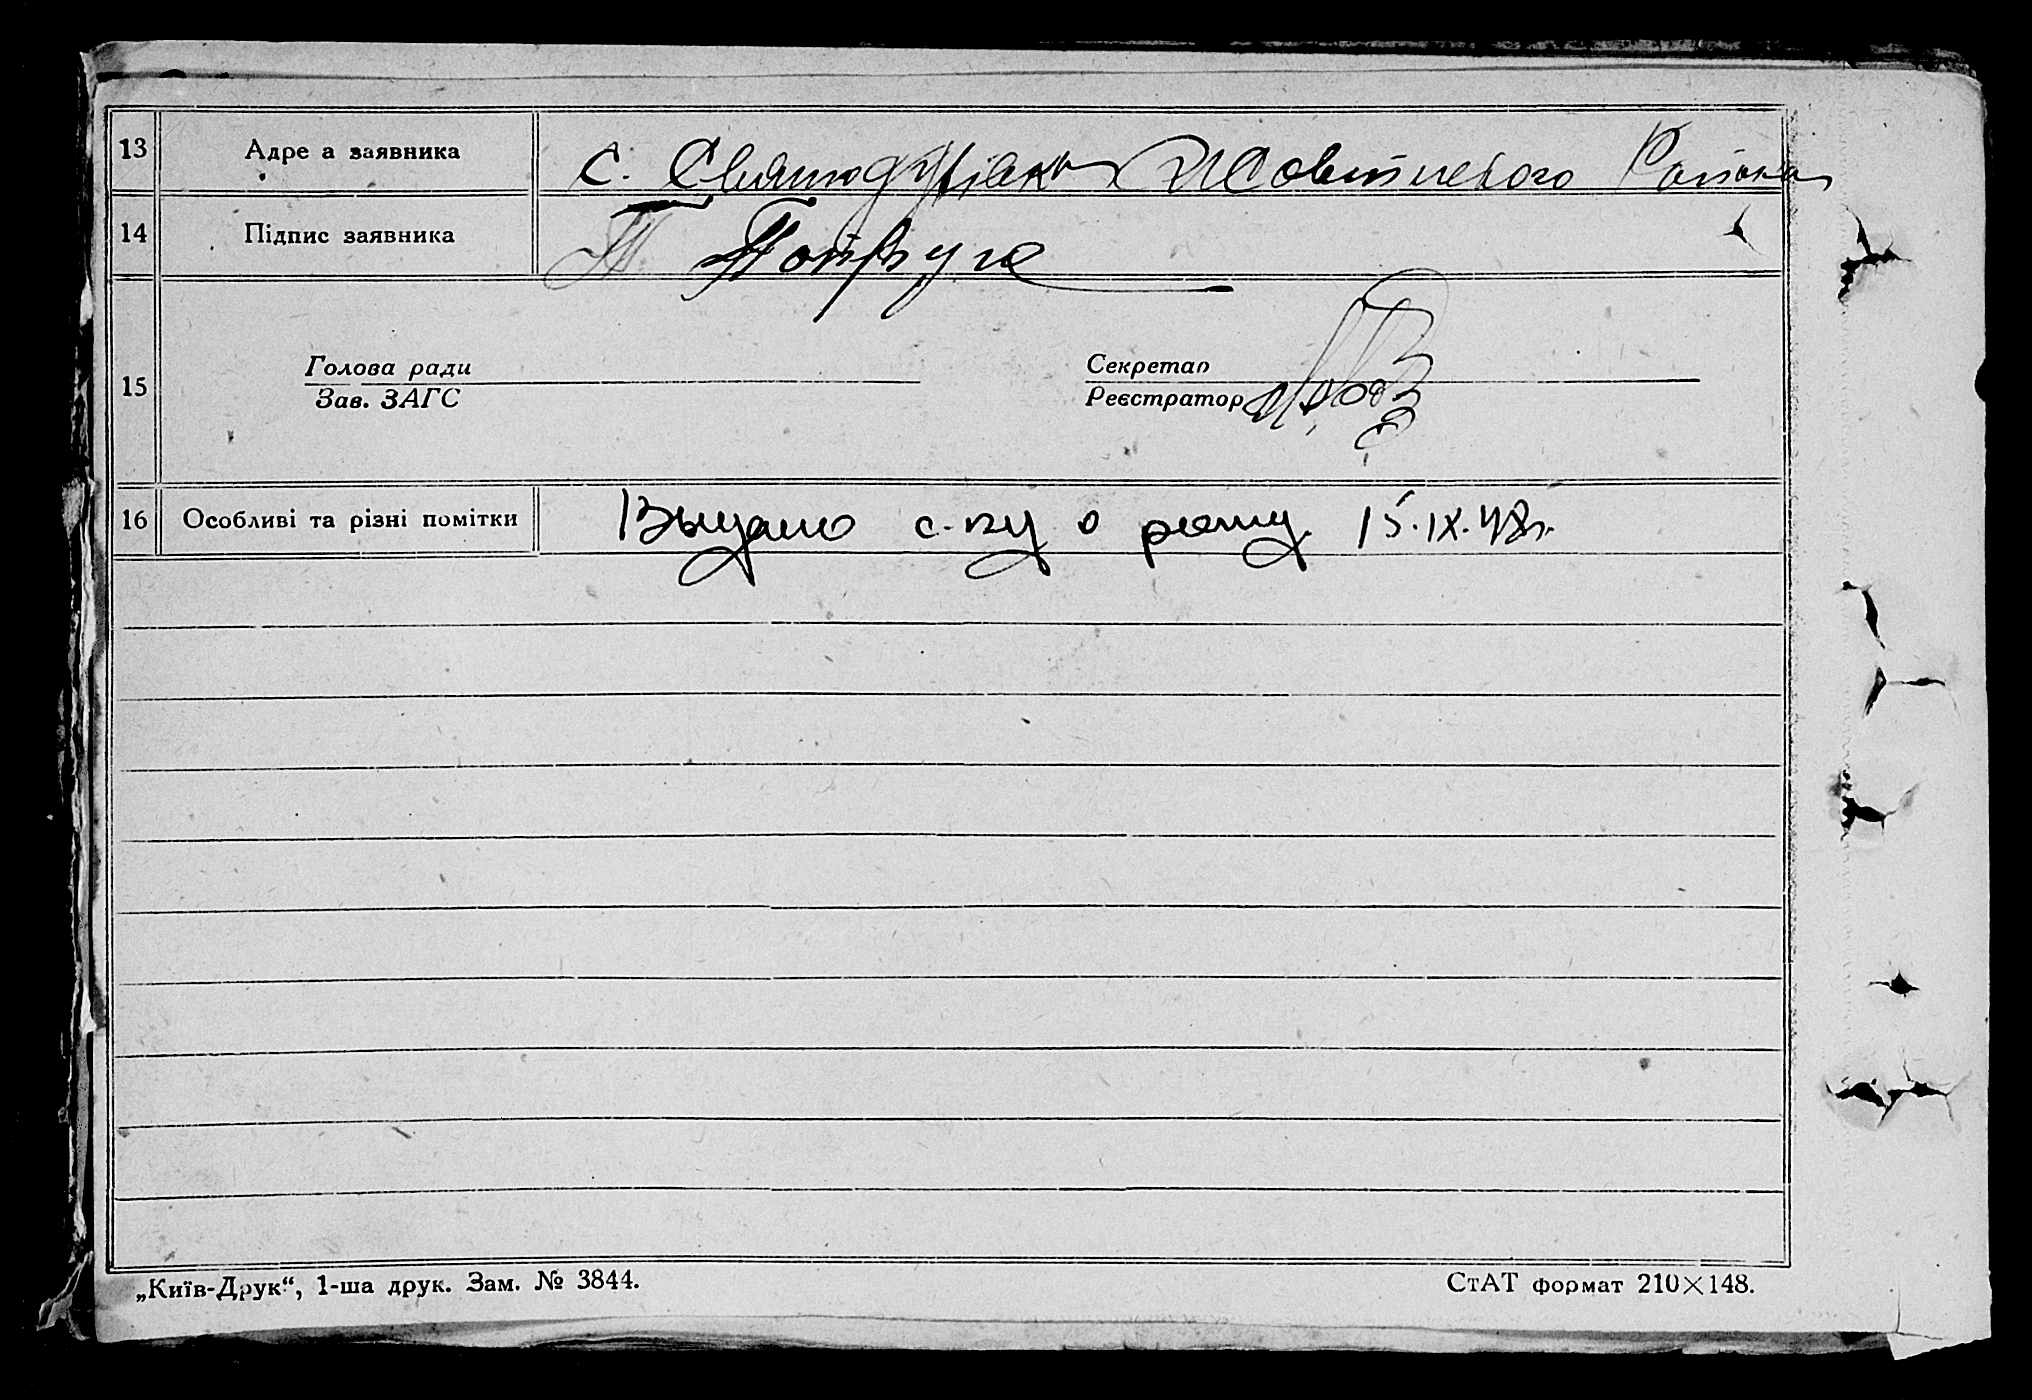 13 Адре а заявника с. Святодухівка Жовтневого Района
14 Підпис заявника
15 Голова ради Секретар
Зав. ЗАГС Реєстратор
16 Особливі та різні помітки Выдано с-ву о рожд. 15.IX.48г.
„Київ-Друк“, 1-ша друк. Зам. № 3844. СтАТ формат 210×148.